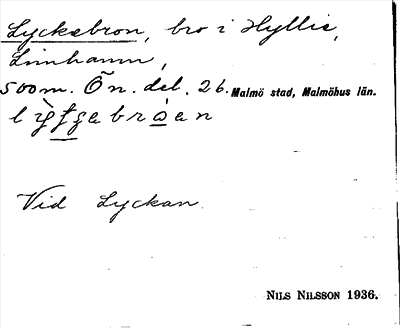 Lyckebron, bro i Hyllie,
Limhamn,
500m. Ö n. del. 26. Malmö stad, Malmöhus län.
Vid Lyckan.
NILS NILSSON 1936.